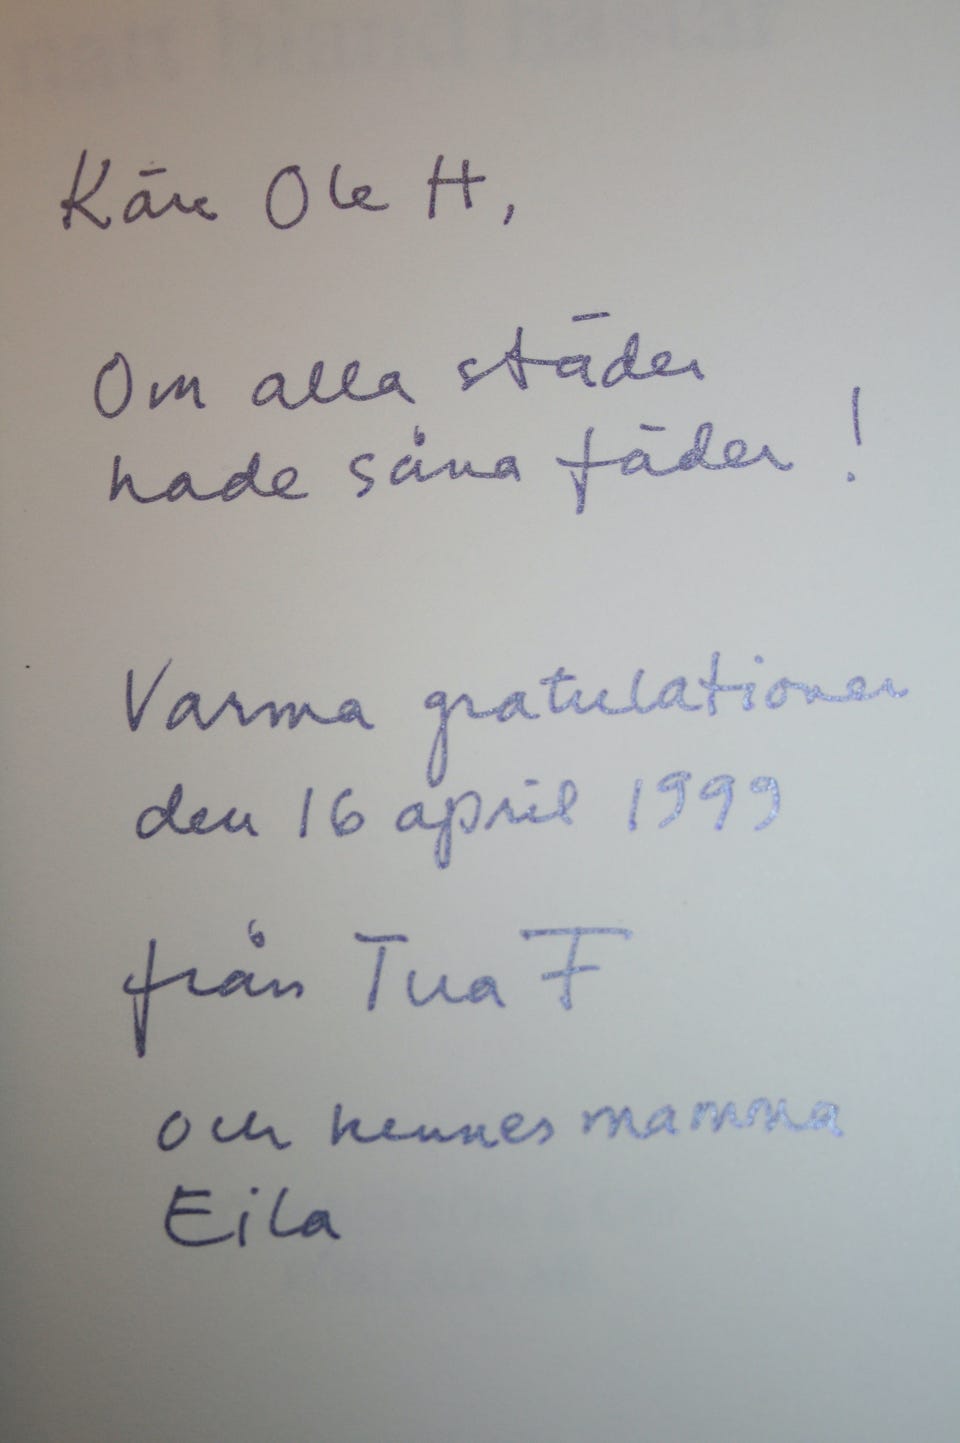 Käre Ole H,
Om alla städer
hade såna fäder!
Varma gratulationer
den 16 april 1999
från Tua F
och hennes mamma
Eila